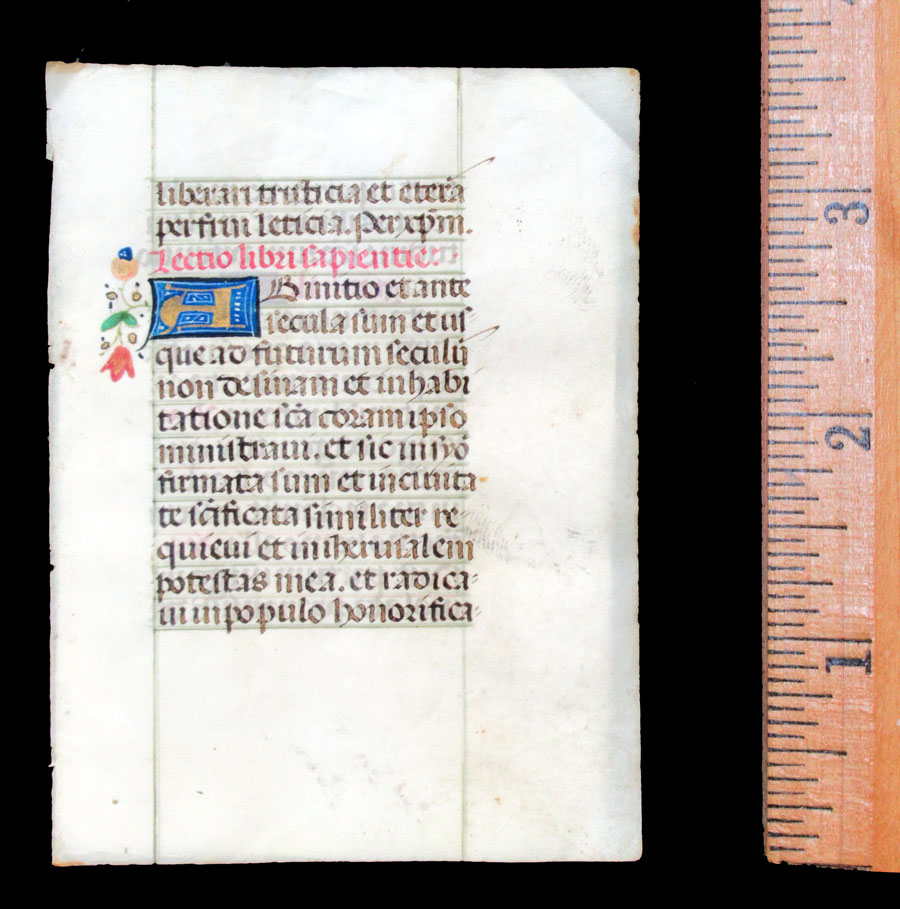 liberari tristicia et eterā
perfrui leticia. Per xp̄m.
Lectio libri sapientie.
AB initio et ante
secula sum et us
que ad futurum seculū
non desinam et in habi
tatione sc̄a coram ipso
ministravi. et sic in syō
firmata sum et in civita
te sc̄ificata similiter re-
quievi et in iherusalem
potestas mea. et radica-
vi in populo honorifica-
3
2
1